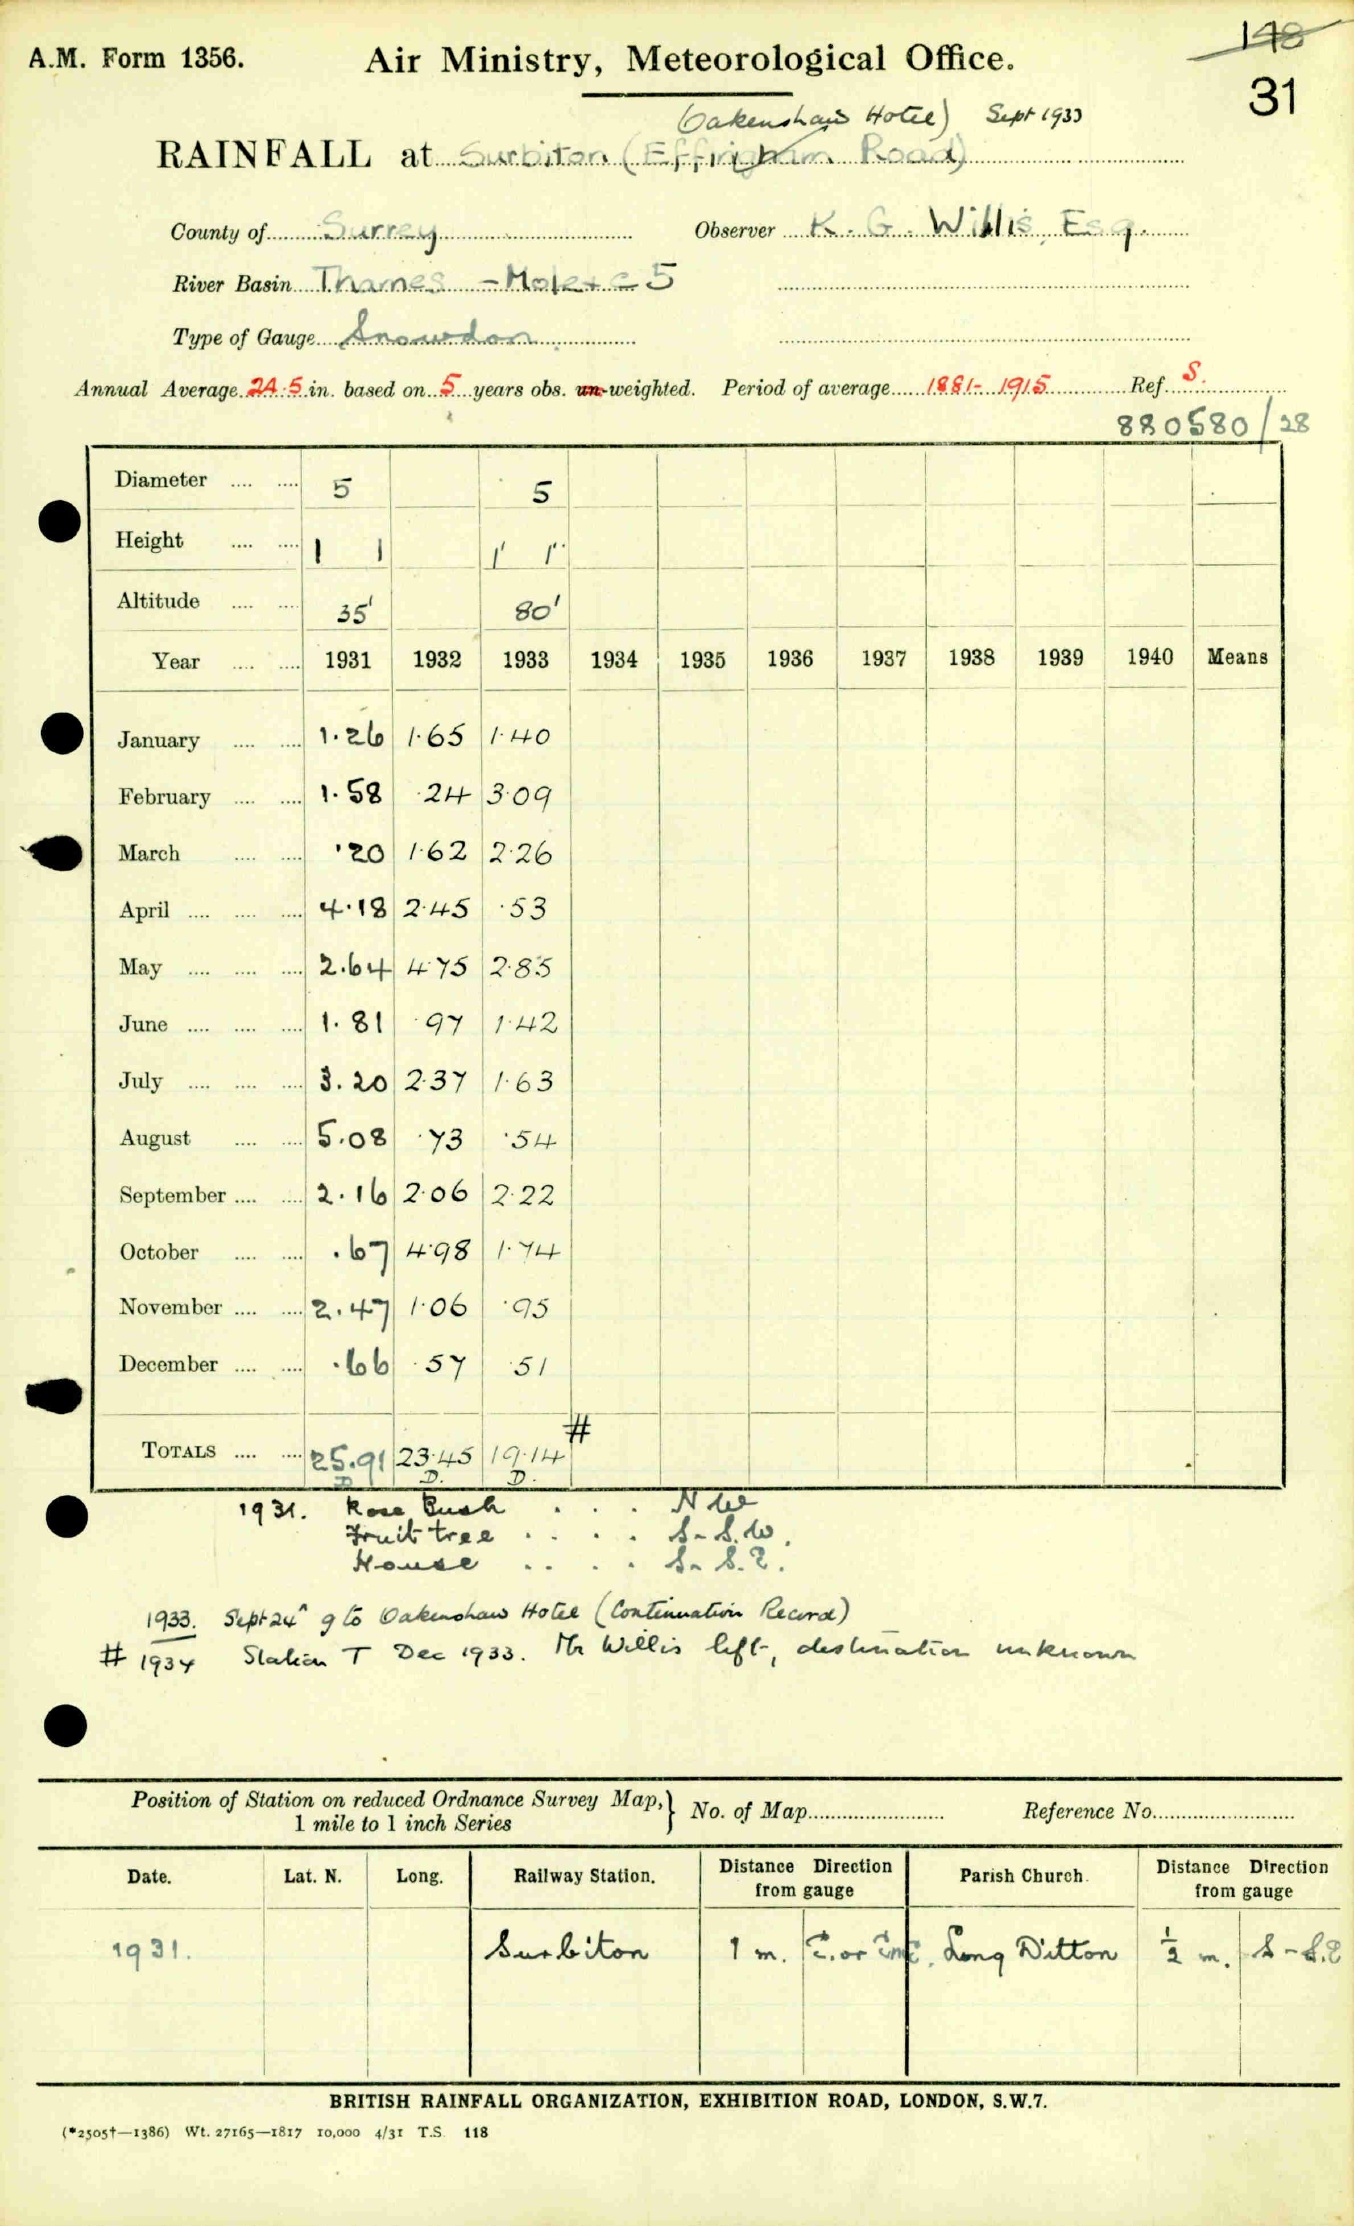 148
A.M. Form 1356. Air Ministry, Meteorological Office.
31
(Oakenshaw Hotel) Sept 1933
RAINFALL at Surbiton (Effingham Road)
County of Surrey Observer K. G. Willis, Esq.
River Basin Thames - Mole &c 5
Type of Gauge Snowdon
Annual Average 24.5 in. based on 5 years obs. un-weighted. Period of average 1881-1915 Ref. S.
880580/28
Diameter .... .... 5 5
Height .... .... 1 1 1' 1"
Altitude .... .... 35' 80'
Year .... .... 1931 1932 1933 1934 1935 1936 1937 1938 1939 1940 Means
January .... .... 1.26 1.65 1.40
February .... .... 1.58 .24 3.09
March .... .... .20 1.62 2.26
April .... .... .... 4.18 2.45 .53
May .... .... .... 2.64 4.75 2.85
June .... .... .... 1.81 .97 1.42
July .... .... .... 3.20 2.37 1.63
August .... .... 5.08 .73 .54
September .... .... 2.16 2.06 2.22
October .... .... .67 4.98 1.74
November .... .... 2.47 1.06 .95
December .... .... .66 .57 .51
TOTALS .... .... 25.91 23.45 19.14 #
D D. D.
1931. Rose Bush . . . N W
Fruit tree . . . . S - S.W.
House . . . . S - S.E.
1933. Sept 24th g to Oakenshaw Hotel (Continuation Record)
# 1934 Station T Dec 1933. Mr Willis left, destination unknown
Position of Station on reduced Ordnance Survey Map, } No. of Map Reference No.
1 mile to 1 inch Series
Date. Lat. N. Long. Railway Station. Distance Direction from gauge Parish Church. Distance Direction from gauge
1931. Surbiton 1 m. E. or Long Ditton ½ m. S - S.E
BRITISH RAINFALL ORGANIZATION, EXHIBITION ROAD, LONDON, S.W.7.
(*2505†—1386) Wt. 27165—1817 10,000 4/31 T.S. 118